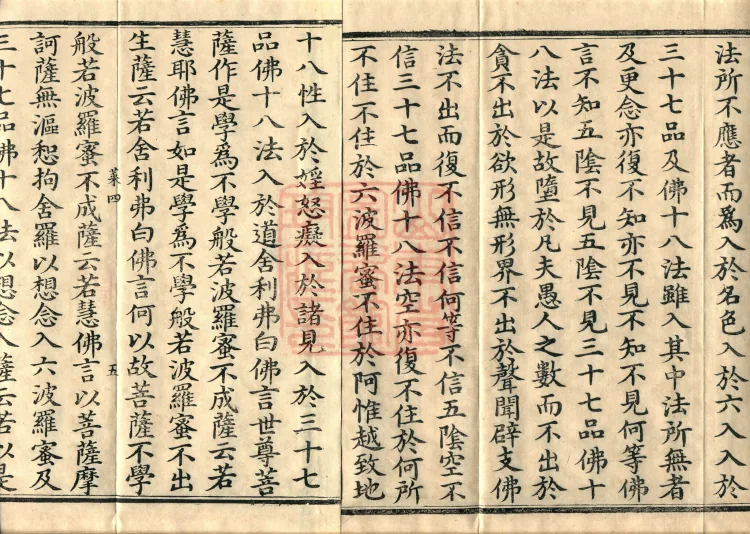 法所不應者而爲入於名色入於六入入於
三十七品及佛十八法雖入其中法所無者
及更念亦復不知亦不見不知不見何等佛
言不知五陰不見五陰不見三十七品佛十
八法以是故墮於凡夫愚人之數而不出於
貪不出於欲形無形界不出於聲聞辟支佛
法不出而復不信不信何等不信五陰空不
信三十七品佛十八法空亦復不住於何所
不住不住於六波羅蜜不住於阿惟越致地
十八性入於婬怒癡入於諸見入於三十七
品佛十八法入於道舍利弗白佛言世尊菩
薩作是學爲不學般若波羅蜜不成薩云若
慧耶佛言如是學爲不學般若波羅蜜不出
生薩云若舍利弗白佛言何以故菩薩不學
般若波羅蜜不成薩云若慧佛言以菩薩摩
菜四 五
訶薩無漚惒拘舍羅以想念入六波羅蜜及
三十七品佛十八法以想念入薩云若以是